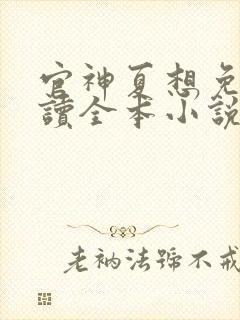 官神夏想免
讀全本小説
老衲法號不戒